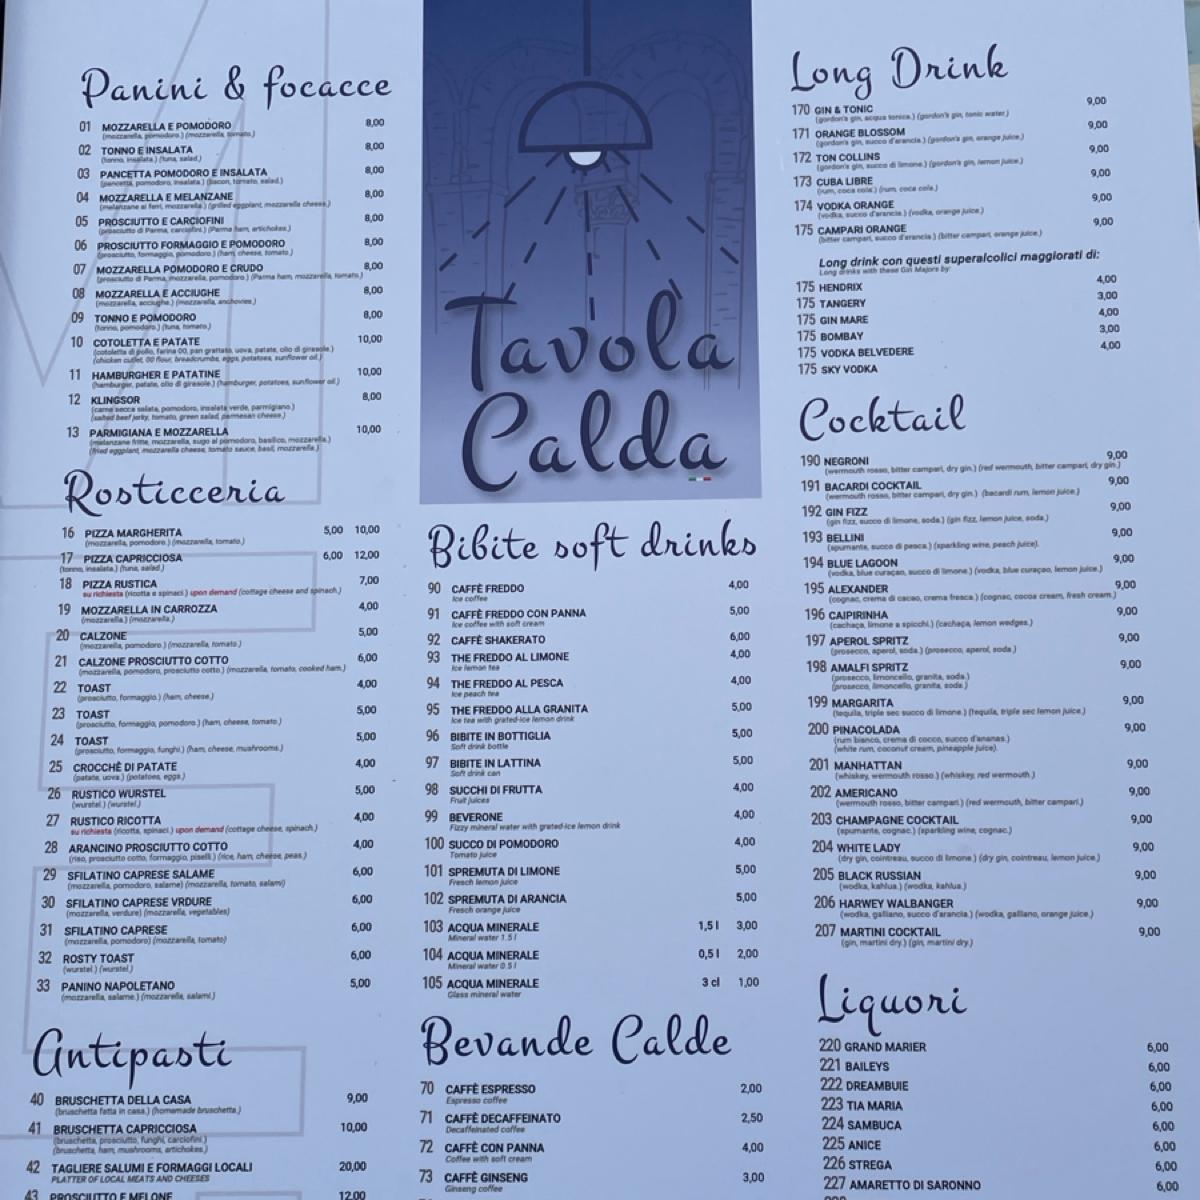 Panini & focacce
01 MOZZARELLA E POMODORO 8,00
(mozzarella, pomodoro.) (mozzarella, tomato.)
02 TONNO E INSALATA 8,00
(tonno, insalata.) (tuna, salad.)
03 PANCETTA POMODORO E INSALATA 8,00
(pancetta, pomodoro, insalata.) (bacon, tomato, salad.)
04 MOZZARELLA E MELANZANE 8,00
(melanzane ai ferri, mozzarella.) (grilled eggplant, mozzarella cheese.)
05 PROSCIUTTO E CARCIOFINI 8,00
(prosciutto di Parma, carciofini.) (Parma ham, artichokes.)
06 PROSCIUTTO FORMAGGIO E POMODORO 8,00
(prosciutto, formaggio, pomodoro.) (ham, cheese, tomato.)
07 MOZZARELLA POMODORO E CRUDO 8,00
(prosciutto di Parma, mozzarella, pomodoro.) (Parma ham, mozzarella, tomato.)
08 MOZZARELLA E ACCIUGHE 8,00
(mozzarella, acciughe.) (mozzarella, anchovies.)
09 TONNO E POMODORO 8,00
(tonno, pomodoro.) (tuna, tomato.)
10 COTOLETTA E PATATE 10,00
(cotoletta di pollo, farina 00, pan grattato, uova, patate, olio di girasole.)
(chicken cutlet, 00 flour, breadcrumbs, eggs, potatoes, sunflower oil.)
11 HAMBURGHER E PATATINE 10,00
(hamburger, patate, olio di girasole.) (hamburger, potatoes, sunflower oil.)
12 KLINGSOR 8,00
(carne secca salata, pomodoro, insalata verde, parmigiano.)
(salted beef jerky, tomato, green salad, parmesan cheese.)
13 PARMIGIANA E MOZZARELLA 10,00
(melanzane fritte, mozzarella, sugo al pomodoro, basilico, mozzarella.)
(fried eggplant, mozzarella cheese, tomato sauce, basil, mozzarella.)
Rosticceria
16 PIZZA MARGHERITA 5,00 10,00
(mozzarella, pomodoro.) (mozzarella, tomato.)
17 PIZZA CAPRICCIOSA 6,00 12,00
(tonno, insalata.) (tuna, salad.)
18 PIZZA RUSTICA 7,00
su richiesta (ricotta e spinaci) upon demand (cottage cheese and spinach.)
19 MOZZARELLA IN CARROZZA 4,00
(mozzarella.) (mozzarella.)
20 CALZONE 5,00
(mozzarella, pomodoro.) (mozzarella, tomato.)
21 CALZONE PROSCIUTTO COTTO 6,00
(mozzarella, pomodoro, prosciutto cotto.) (mozzarella, tomato, cooked ham.)
22 TOAST 4,00
(prosciutto, formaggio.) (ham, cheese.)
23 TOAST 5,00
(prosciutto, formaggio, pomodoro.) (ham, cheese, tomato.)
24 TOAST 5,00
(prosciutto, formaggio, funghi.) (ham, cheese, mushrooms.)
25 CROCCHÈ DI PATATE 4,00
(patate, uova.) (potatoes, eggs.)
26 RUSTICO WURSTEL 5,00
(wurstel.) (wurstel.)
27 RUSTICO RICOTTA 4,00
su richiesta (ricotta, spinaci.) upon demand (cottage cheese, spinach.)
28 ARANCINO PROSCIUTTO COTTO 4,00
(riso, prosciutto cotto, formaggio, piselli.) (rice, ham, cheese, peas.)
29 SFILATINO CAPRESE SALAME 6,00
(mozzarella, pomodoro, salame) (mozzarella, tomato, salami)
30 SFILATINO CAPRESE VRDURE 6,00
(mozzarella, verdure) (mozzarella, vegetables)
31 SFILATINO CAPRESE 6,00
(mozzarella, pomodoro) (mozzarella, tomato)
32 ROSTY TOAST 6,00
(wurstel.) (wurstel.)
33 PANINO NAPOLETANO 5,00
(mozzarella, salame.) (mozzarella, salami.)
Antipasti
40 BRUSCHETTA DELLA CASA 9,00
(bruschetta fatta in casa.) (homemade bruschetta.)
41 BRUSCHETTA CAPRICCIOSA 10,00
(bruschetta, prosciutto, funghi, carciofini.)
(bruschetta, ham, mushrooms, artichokes.)
42 TAGLIERE SALUMI E FORMAGGI LOCALI 20,00
PLATTER OF LOCAL MEATS AND CHEESES
43 PROSCIUTTO E MELONE 12,00
Tavola
Calda
Bibite soft drinks
90 CAFFÈ FREDDO 4,00
Ice coffee
91 CAFFÈ FREDDO CON PANNA 5,00
Ice coffee with soft cream
92 CAFFÈ SHAKERATO 6,00
93 THE FREDDO AL LIMONE 4,00
Ice lemon tea
94 THE FREDDO AL PESCA 4,00
Ice peach tea
95 THE FREDDO ALLA GRANITA 5,00
Ice tea with grated-ice lemon drink
96 BIBITE IN BOTTIGLIA 5,00
Soft drink bottle
97 BIBITE IN LATTINA 5,00
Soft drink can
98 SUCCHI DI FRUTTA 4,00
Fruit juices
99 BEVERONE 4,00
Fizzy mineral water with grated-ice lemon drink
100 SUCCO DI POMODORO 4,00
Tomato juice
101 SPREMUTA DI LIMONE 5,00
Fresch lemon juice
102 SPREMUTA DI ARANCIA 5,00
Fresch orange juice
103 ACQUA MINERALE 1,5 l 3,00
Mineral water 1.5 l
104 ACQUA MINERALE 0,5 l 2,00
Mineral water 0.5 l
105 ACQUA MINERALE 3 cl 1,00
Glass mineral water
Bevande Calde
70 CAFFÈ ESPRESSO 2,00
Espresso coffee
71 CAFFÈ DECAFFEINATO 2,50
Decaffeinated coffee
72 CAFFÈ CON PANNA 4,00
Coffee with soft cream
73 CAFFÈ GINSENG 3,00
Ginseng coffee
Long Drink
170 GIN & TONIC 9,00
(gordon's gin, acqua tonica.) (gordon's gin, tonic water.)
171 ORANGE BLOSSOM 9,00
(gordon's gin, succo d'arancia.) (gordon's gin, orange juice.)
172 TON COLLINS 9,00
(gordon's gin, succo di limone.) (gordon's gin, lemon juice.)
173 CUBA LIBRE 9,00
(rum, coca cola.) (rum, coca cola.)
174 VODKA ORANGE 9,00
(vodka, succo d'arancia.) (vodka, orange juice.)
175 CAMPARI ORANGE 9,00
(bitter campari, succo d'arancia.) (bitter campari, orange juice.)
Long drink con questi superalcolici maggiorati di:
Long drinks with these Gin Majors by:
175 HENDRIX 4,00
175 TANGERY 3,00
175 GIN MARE 4,00
175 BOMBAY 3,00
175 VODKA BELVEDERE 4,00
175 SKY VODKA
Cocktail
190 NEGRONI 9,00
(wermouth rosso, bitter campari, dry gin.) (red wermouth, bitter campari, dry gin.)
191 BACARDI COCKTAIL 9,00
(wermouth rosso, bitter campari, dry gin.) (bacardi rum, lemon juice.)
192 GIN FIZZ 9,00
(gin fizz, succo di limone, soda.) (gin fizz, lemon juice, soda.)
193 BELLINI 9,00
(spumante, succo di pesca.) (sparkling wine, peach juice).
194 BLUE LAGOON 9,00
(vodka, blue curaçao, succo di limone.) (vodka, blue curaçao, lemon juice.)
195 ALEXANDER 9,00
(cognac, crema di cacao, crema fresca.) (cognac, cocoa cream, fresh cream.)
196 CAIPIRINHA 9,00
(cachaça, limone a spicchi.) (cachaça, lemon wedges.)
197 APEROL SPRITZ 9,00
(prosecco, aperol, soda.) (prosecco, aperol, soda.)
198 AMALFI SPRITZ 9,00
(prosecco, limoncello, granita, soda.)
(prosecco, limoncello, granita, soda.)
199 MARGARITA 9,00
(tequila, triple sec succo di limone.) (tequila, triple sec lemon juice.)
200 PINACOLADA 9,00
(rum bianco, crema di cocco, succo d'ananas.)
(white rum, coconut cream, pineapple juice).
201 MANHATTAN 9,00
(whiskey, wermouth rosso.) (whiskey, red wermouth.)
202 AMERICANO 9,00
(wermouth rosso, bitter campari.) (red wermouth, bitter campari.)
203 CHAMPAGNE COCKTAIL 9,00
(spumante, cognac.) (sparkling wine, cognac.)
204 WHITE LADY 9,00
(dry gin, cointreau, succo di limone.) (dry gin, cointreau, lemon juice.)
205 BLACK RUSSIAN 9,00
(wodka, kahlua.) (wodka, kahlua.)
206 HARWEY WALBANGER 9,00
(wodka, galliano, succo d'arancia.) (wodka, galliano, orange juice.)
207 MARTINI COCKTAIL 9,00
(gin, martini dry.) (gin, martini dry.)
Liquori
220 GRAND MARIER 6,00
221 BAILEYS 6,00
222 DREAMBUIE 6,00
223 TIA MARIA 6,00
224 SAMBUCA 6,00
225 ANICE 6,00
226 STREGA 6,00
227 AMARETTO DI SARONNO 6,00